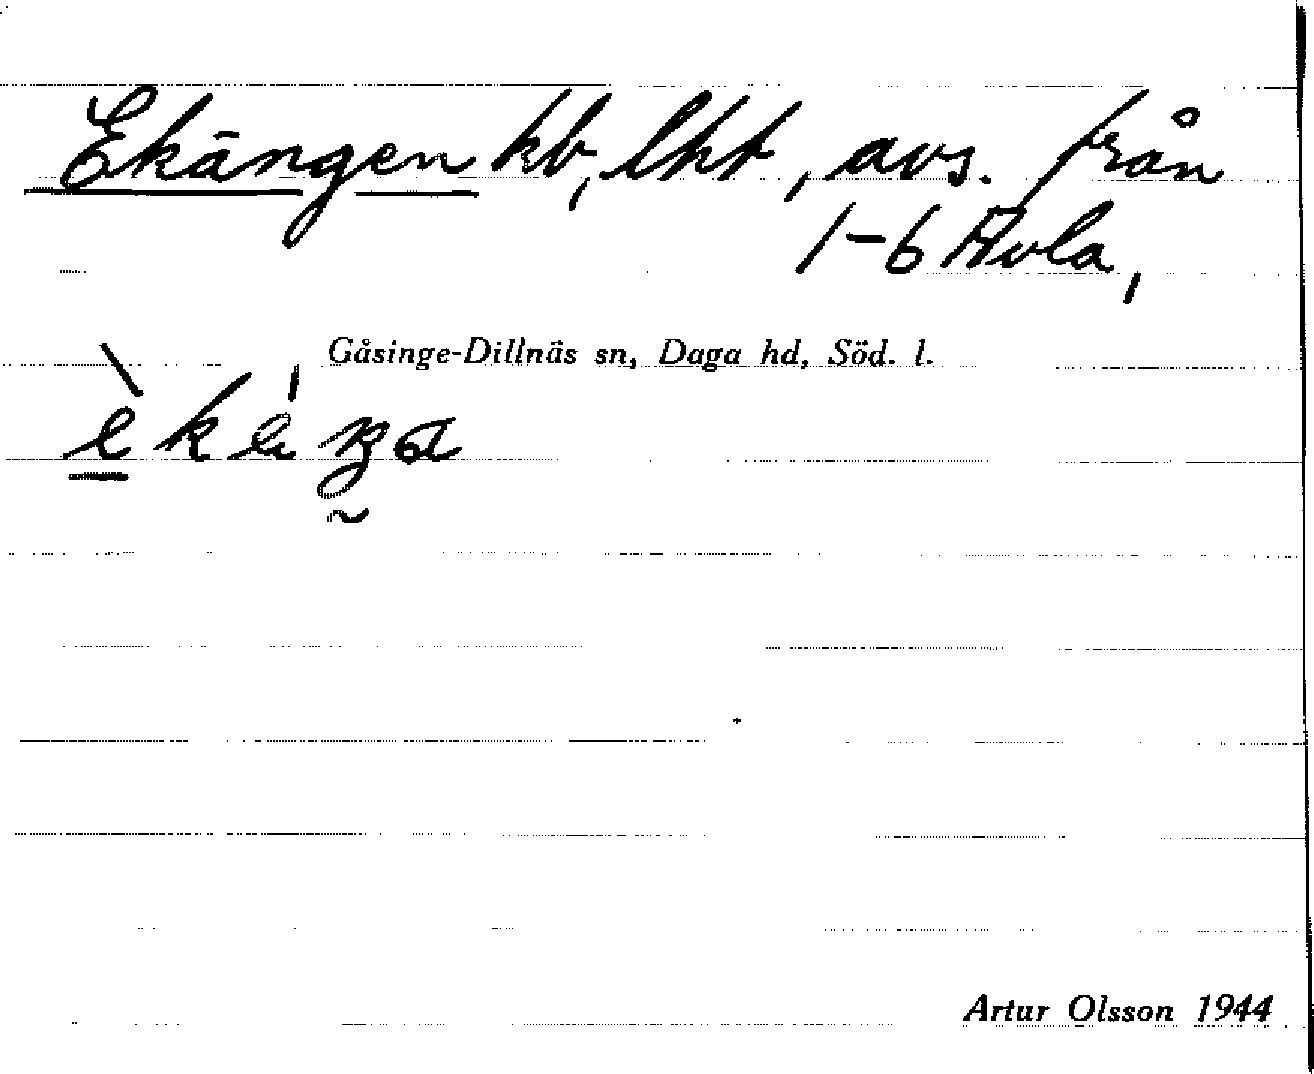 Ekängen hb, lht, avs. från
1-6 Ävla,
Gåsinge-Dillnäs sn, Daga hd, Söd. l.
Artur Olsson 1944